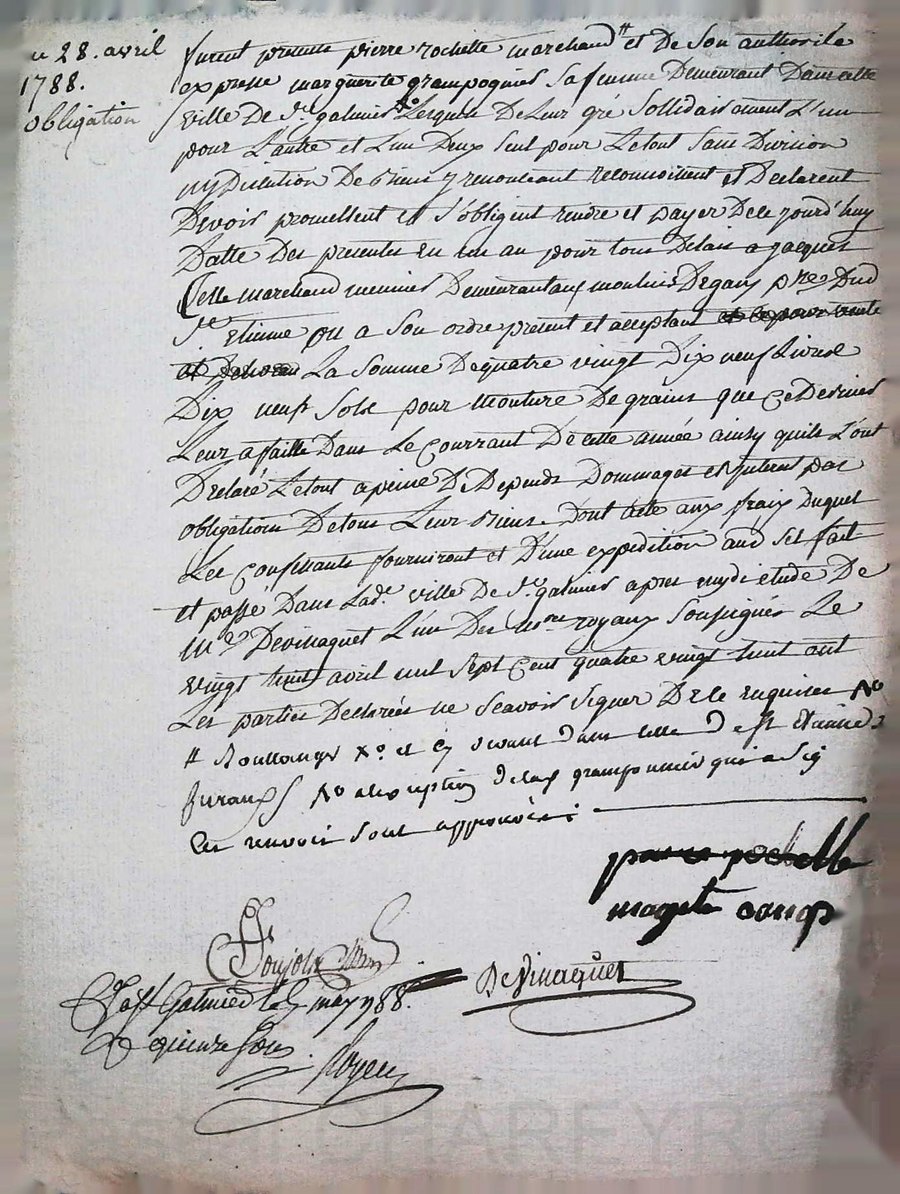 28. avril
1788.
obligation
furent presents pierre rochette marchand # et De Son authorité
expresse marguerite Sa femme Demeurant Dans cette
ville De St. galmier Lesquels De Leur gré Sollidairement L'un
pour L'autre et L'un Deux Seul pour Letout Sans Division
ny Discution De biens y renonceant reconnoissent et Declarent
Devoir promettent et s'obligent rendre et payer Dece jourd'huy
Datte Des presentes En un an pour tous Delais a jacques
marchand meunier Demeurant aux moulins Degary
St. Etienne ou a Son ordre present et acceptant
La Somme Dequatre vingt Dix neuf Livres
Dix neuf Sols pour Mouture De grains que Ce Dernier
Leur a faitte Dans Le Courrant De cette année ainsy quils L'ont
Declaré Letout a peine De Depends Dommages et interest par
obligation Detous Leur Biens. Dont acte aux fraix Duquel
Les Confessants fourniront et D'une expedition aud Sr fait
et passé Dans Lade. ville De St. galmier apres mydi etude De
Me Devinaquet L'un Des nores royaux Soussignés Le
vingt huit avril mil Sept Cent quatre vingt huit ont
Les parties Declarées ne Scavoir Signer De ce enquises
# Boullanger et
furans a exception delad qui a sig
Ces renvois Sont approuvés :
pierre rochette
Devinaquet
galmier le may 1788.
quinze Sous